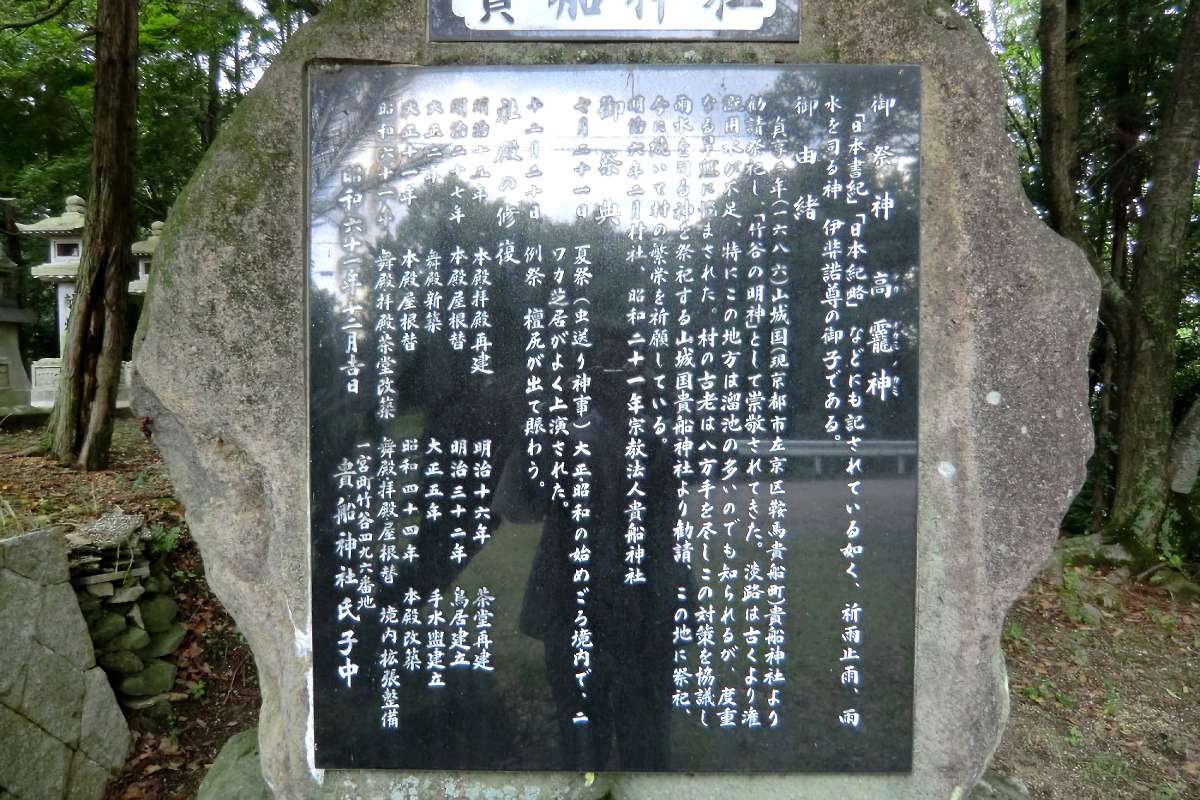 貴船神社
御祭神 高龗神
「日本書紀」「日本紀略」などにも記されている如く、祈雨止雨、雨
水を司る神 伊弉諾尊の御子である。
御由緒
貞享三年(一六八六)山城国(現京都市左京区鞍馬貴船町貴船神社より
勧請祭祀し、「竹谷の明神」として崇敬されてきた。淡路は古くより灌
漑用水が不足、特にこの地方は溜池の多いのでも知られるが、度重
なる旱魃に悩まされた。村の古老は八方手を尽しこの対策を協議し
雨水を司る神を祭祀する山城国貴船神社より勧請、この地に祭祀、
今に続いて村の繁栄を祈願している。
明治六年二月村社、昭和二十一年宗教法人貴船神社
御祭典
七月二十一日 夏祭(虫送り神事)大正・昭和の始めごろ境内で、ニ
ワカ芝居がよく上演された。
十二月二十日 例祭 檀尻が出て賑わう。
社殿の修復
明治十五年 本殿拝殿再建 明治十六年 茶堂再建
明治二十七年 本殿屋根替 明治三十二年 鳥居建立
大正二年 舞殿新築 大正五年 手水盥建立
大正十一年 本殿屋根替 昭和四十四年 本殿改築
昭和六十一年 舞殿拝殿茶堂改築 舞殿拝殿屋根替 境内拡張整備
一宮町竹谷四九六番地
昭和六十一年十二月吉日 貴船神社氏子中